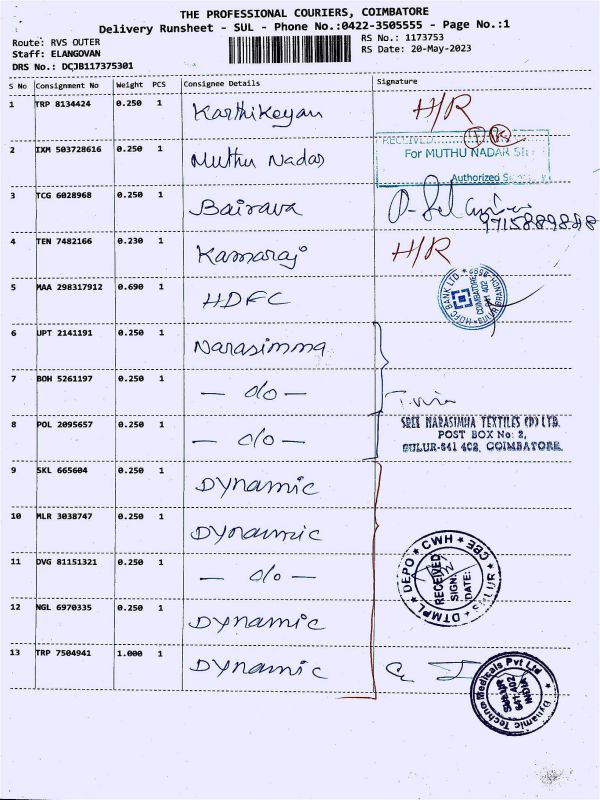 THE PROFESSIONAL COURIERS, COIMBATORE
Delivery Runsheet - SUL - Phone No.:0422-3505555 - Page No.:1
Route: RVS OUTER
RS No.: 1173753
Staff: ELANGOVAN
RS Date: 20-May-2023
DRS No.: DCJB117375301
S No Consignment No Weight PCS Consignee Details Signature
1 TRP 8134424 0.250 1 Karthikeyan H/R
2 IXM 503728616 0.250 1 Muthu Nadar
RECEIVED
For MUTHU NADAR
Authorized
3 TCG 6028968 0.250 1 Bairava
4 TEN 7482166 0.230 1 Kamaraj H/R
5 MAA 298317912 0.690 1 HDFC
HDFC BANK LTD. * SULUR BRANCH
COIMBATORE
641 402
6 UPT 2141191 0.250 1 Narasimma
7 BOH 5261197 0.250 1 — do —
8 POL 2095657 0.250 1 — do —
SREE NARASIMHA TEXTILES (P) LTD.
POST BOX No: 2,
SULUR-641 402, COIMBATORE.
9 SKL 665604 0.250 1 Dynamic
10 MLR 3038747 0.250 1 Dynamic
11 DVG 81151321 0.250 1 — do —
DTMPL * DEPO * CWH * CBE
RECEIVED
SIGN:
DATE:
12 NGL 6970335 0.250 1 Dynamic
13 TRP 7504941 1.000 1 Dynamic
Dynamic Techno Medicals Pvt Ltd
SULUR
641 402
INDIA